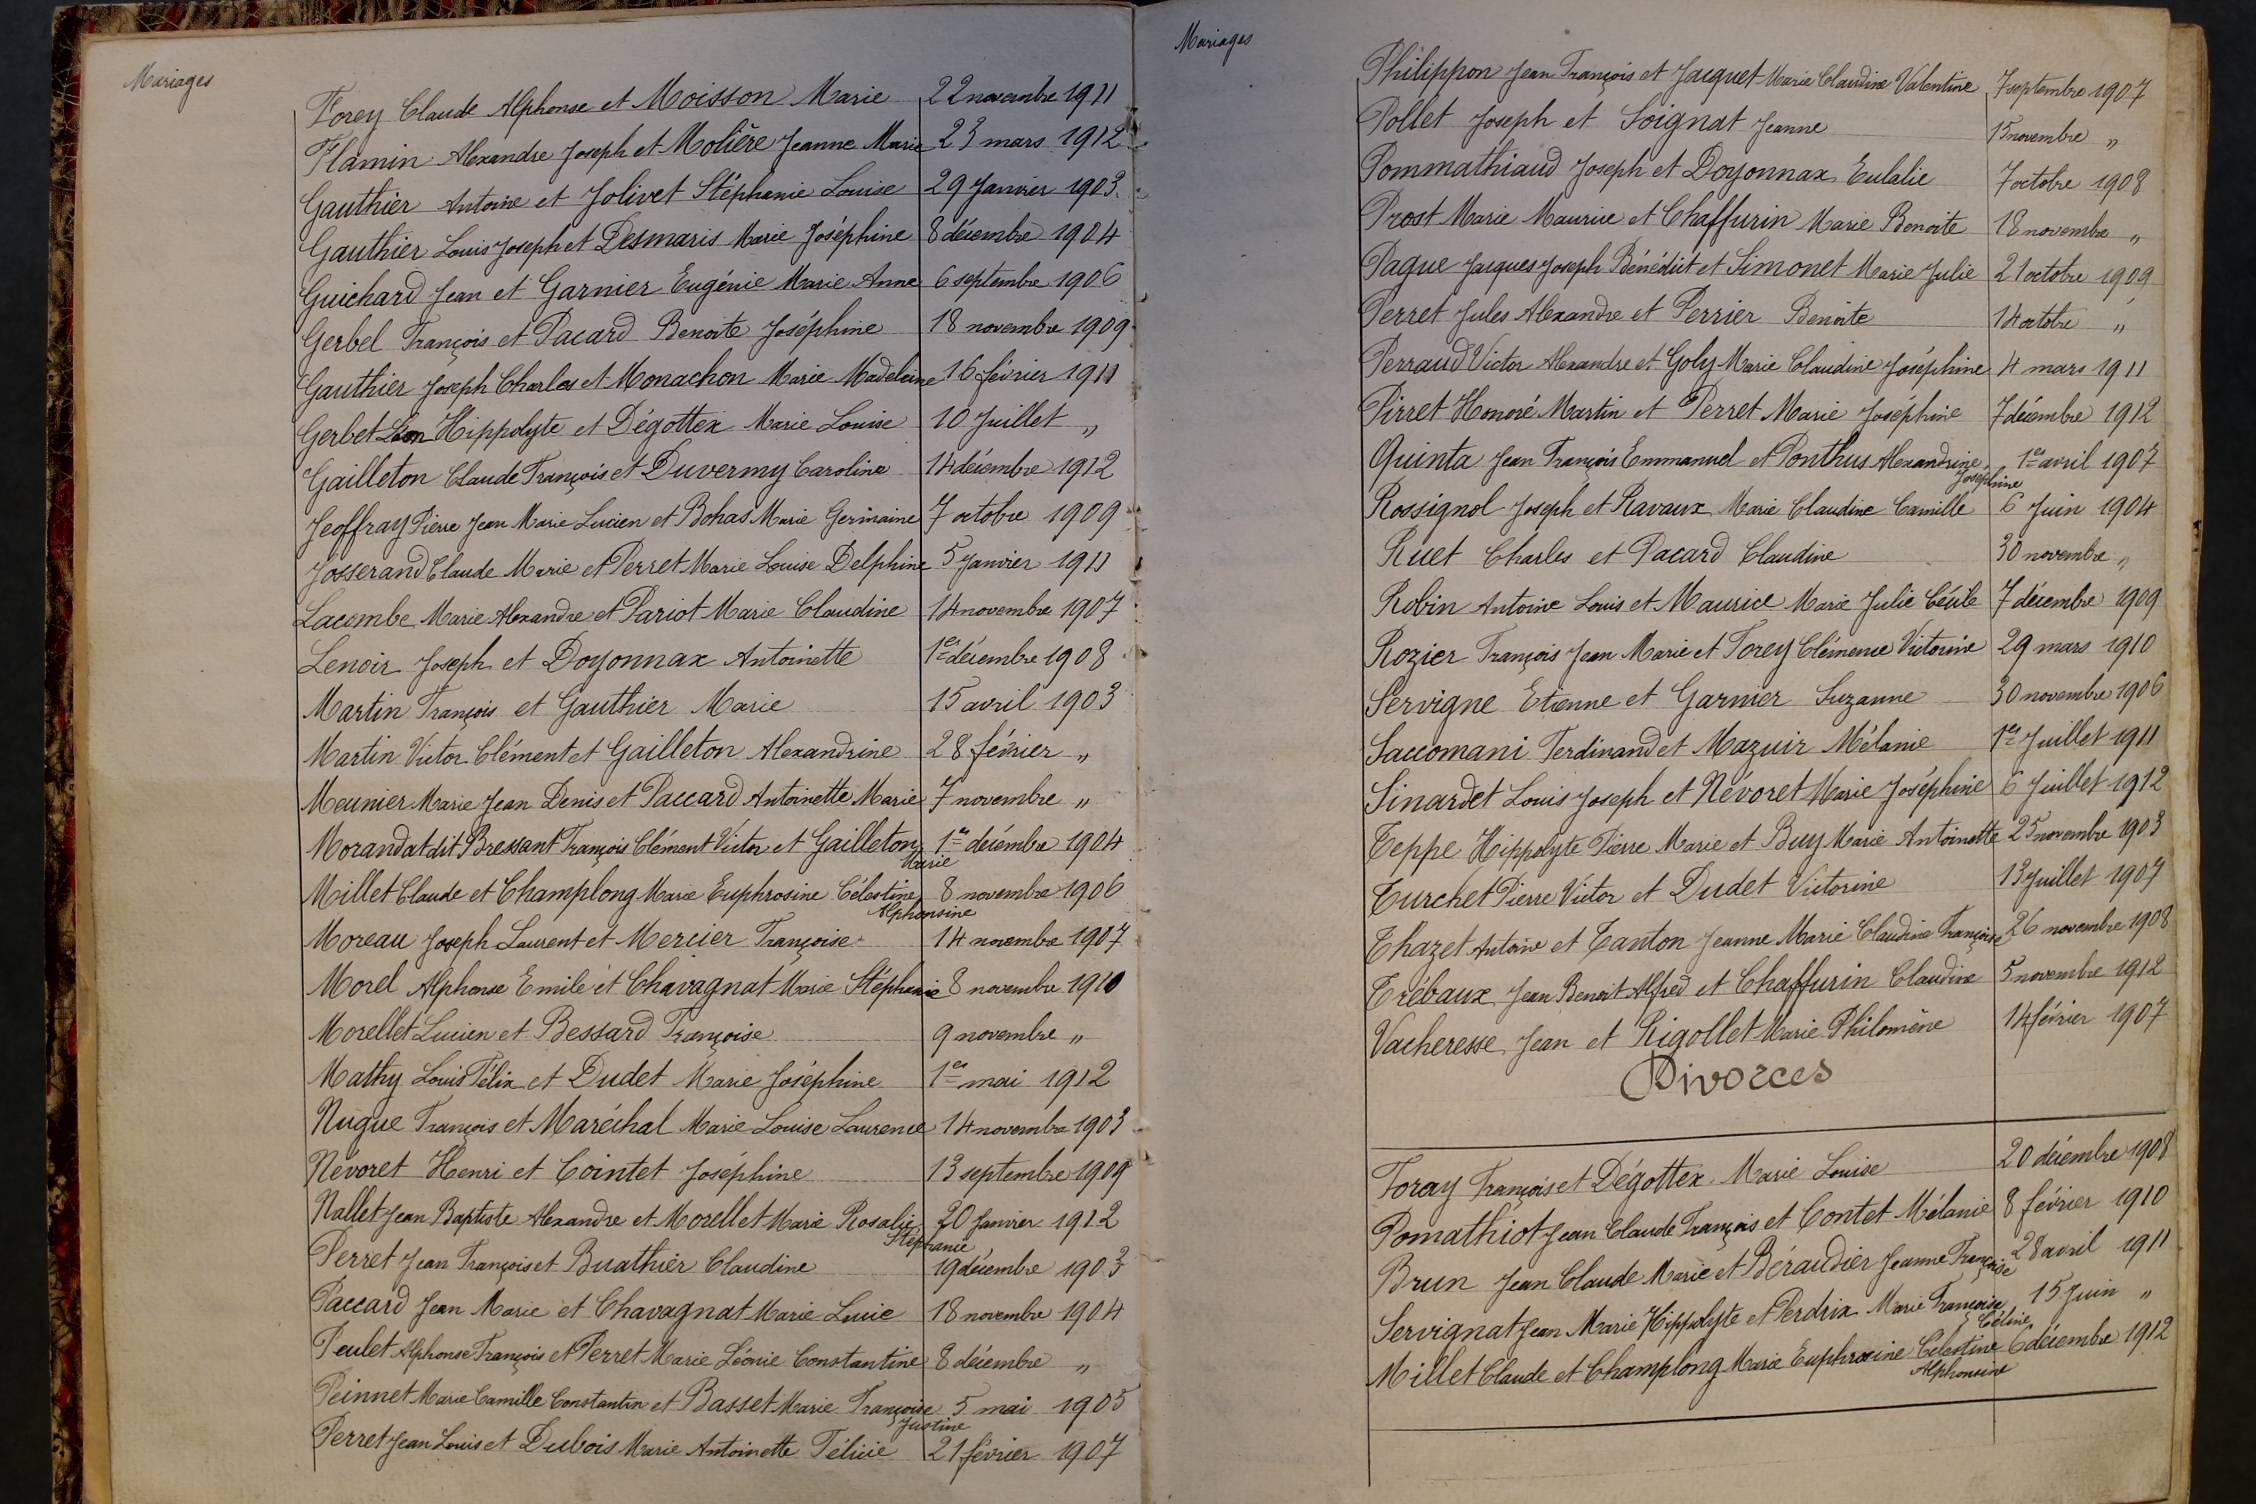 Mariages
Forey Claude Alphonse et Moisson Marie 22 novembre 1911
Flamin Alexandre Joseph et Molière Jeanne Marie 23 mars 1912
Gauthier Antoine et Jolivet Stéphanie Louise 29 Janvier 1903
Gauthier Louis Joseph et Desmaris Marie Joséphine 8 décembre 1904
Guichard Jean et Garnier Eugénie Marie Anne 6 septembre 1906
Gerbel François et Pacard Benoite Joséphine 18 novembre 1909
Gauthier Joseph Charles et Monachon Marie Madeleine 16 février 1911
Gerbet Léon Hippolyte et Dégottex Marie Louise 10 Juillet "
Gailleton Claude François et Duvermy Caroline 14 décembre 1912
Jeoffray Pierre Jean Marie Lucien et Bohas Marie Germaine 7 octobre 1909
Josserand Claude Marie et Perret Marie Louise Delphine 5 Janvier 1911
Lacombe Marie Alexandre et Pariot Marie Claudine 14 novembre 1907
Lenoir Joseph et Doyonnax Antoinette 1er décembre 1908
Martin François et Gauthier Marie 15 avril 1903
Martin Victor Clément et Gailleton Alexandrine 28 février "
Meunier Marie Jean Denis et Paccard Antoinette Marie 7 novembre "
Morandat dit Bressant François Clément Victor et Gailleton 1er décembre 1904
Marie
Millet Claude et Champlong Marie Euphrosine Célestine 8 novembre 1906
Alphonsine
Moreau Joseph Laurent et Mercier Françoise 14 novembre 1907
Morel Alphonse Emile et Chavagnat Marie Stéphanie 8 novembre 1910
Morellet Lucien et Bessard Françoise 9 novembre "
Mathy Louis Félix et Dudet Marie Joséphine 1er mai 1912
Nugue François et Maréchal Marie Louise Laurence 14 novembre 1903
Névoret Henri et Cointet Joséphine 13 septembre 1909
Nallet Jean Baptiste Alexandre et Morellet Marie Rosalie 20 Janvier 1912
Stéphanie
Perret Jean François et Buathier Claudine 19 décembre 1903
Paccard Jean Marie et Chavagnat Marie Lucie 18 novembre 1904
Peulet Alphonse François et Perret Marie Léonie Constantine 8 décembre "
Peinnet Marie Camille Constantin et Basset Marie Françoise 5 mai 1905
Justine
Perret Jean Louis et Dubois Marie Antoinette Félicie 21 février 1907
Mariages
Philippon Jean François et Jacquet Marie Claudine Valentine 7 septembre 1907
Pollet Joseph et Soignat Jeanne 15 novembre "
Pommathiaud Joseph et Doyonnax Eulalie 7 octobre 1908
Prost Marie Maurice et Chaffurin Marie Benoite 18 novembre "
Pague Jacques Joseph Bénédict et Simonet Marie Julie 21 octobre 1909
Perret Jules Alexandre et Perrier Benoite 14 octobre "
Perraud Victor Alexandre et Goly Marie Claudine Joséphine 4 mars 1911
Pirret Honoré Martin et Perret Marie Joséphine 7 décembre 1912
Quinta Jean François Emmanuel et Ponthus Alexandrine 1er avril 1907
Joséphine
Rossignol Joseph et Ravaux Marie Claudine Camille 6 Juin 1904
Ruet Charles et Pacard Claudine 30 novembre "
Robin Antoine Louis et Maurice Marie Julie Cécile 7 décembre 1909
Rozier François Jean Marie et Forey Clémence Victorine 29 mars 1910
Servigne Etienne et Garnier Suzanne 30 novembre 1906
Saccomani Ferdinand et Mazuir Mélanie 1er Juillet 1911
Sinardet Louis Joseph et Névoret Marie Joséphine 6 Juillet 1912
Teppe Hippolyte Pierre Marie et Buy Marie Antoinette 25 novembre 1903
Turchet Pierre Victor et Dudet Victorine 13 Juillet 1907
Thazet Antoine et Tanton Jeanne Marie Claudine Françoise 26 novembre 1908
Trébaux Jean Benoit Alfred et Chaffurin Claudine 5 novembre 1912
Vacheresse Jean et Rigollet Marie Philomène 14 février 1907
Divorces
Foray François et Dégottex Marie Louise 20 décembre 1908
Pomathiot Jean Claude François et Contet Mélanie 8 février 1910
Brun Jean Claude Marie et Béraudier Jeanne Françoise 28 avril 1911
Servignat Jean Marie Hippolyte et Perdrix Marie Françoise 15 Juin "
Céline
Millet Claude et Champlong Marie Euphrosine Célestine 6 décembre 1912
Alphonsine